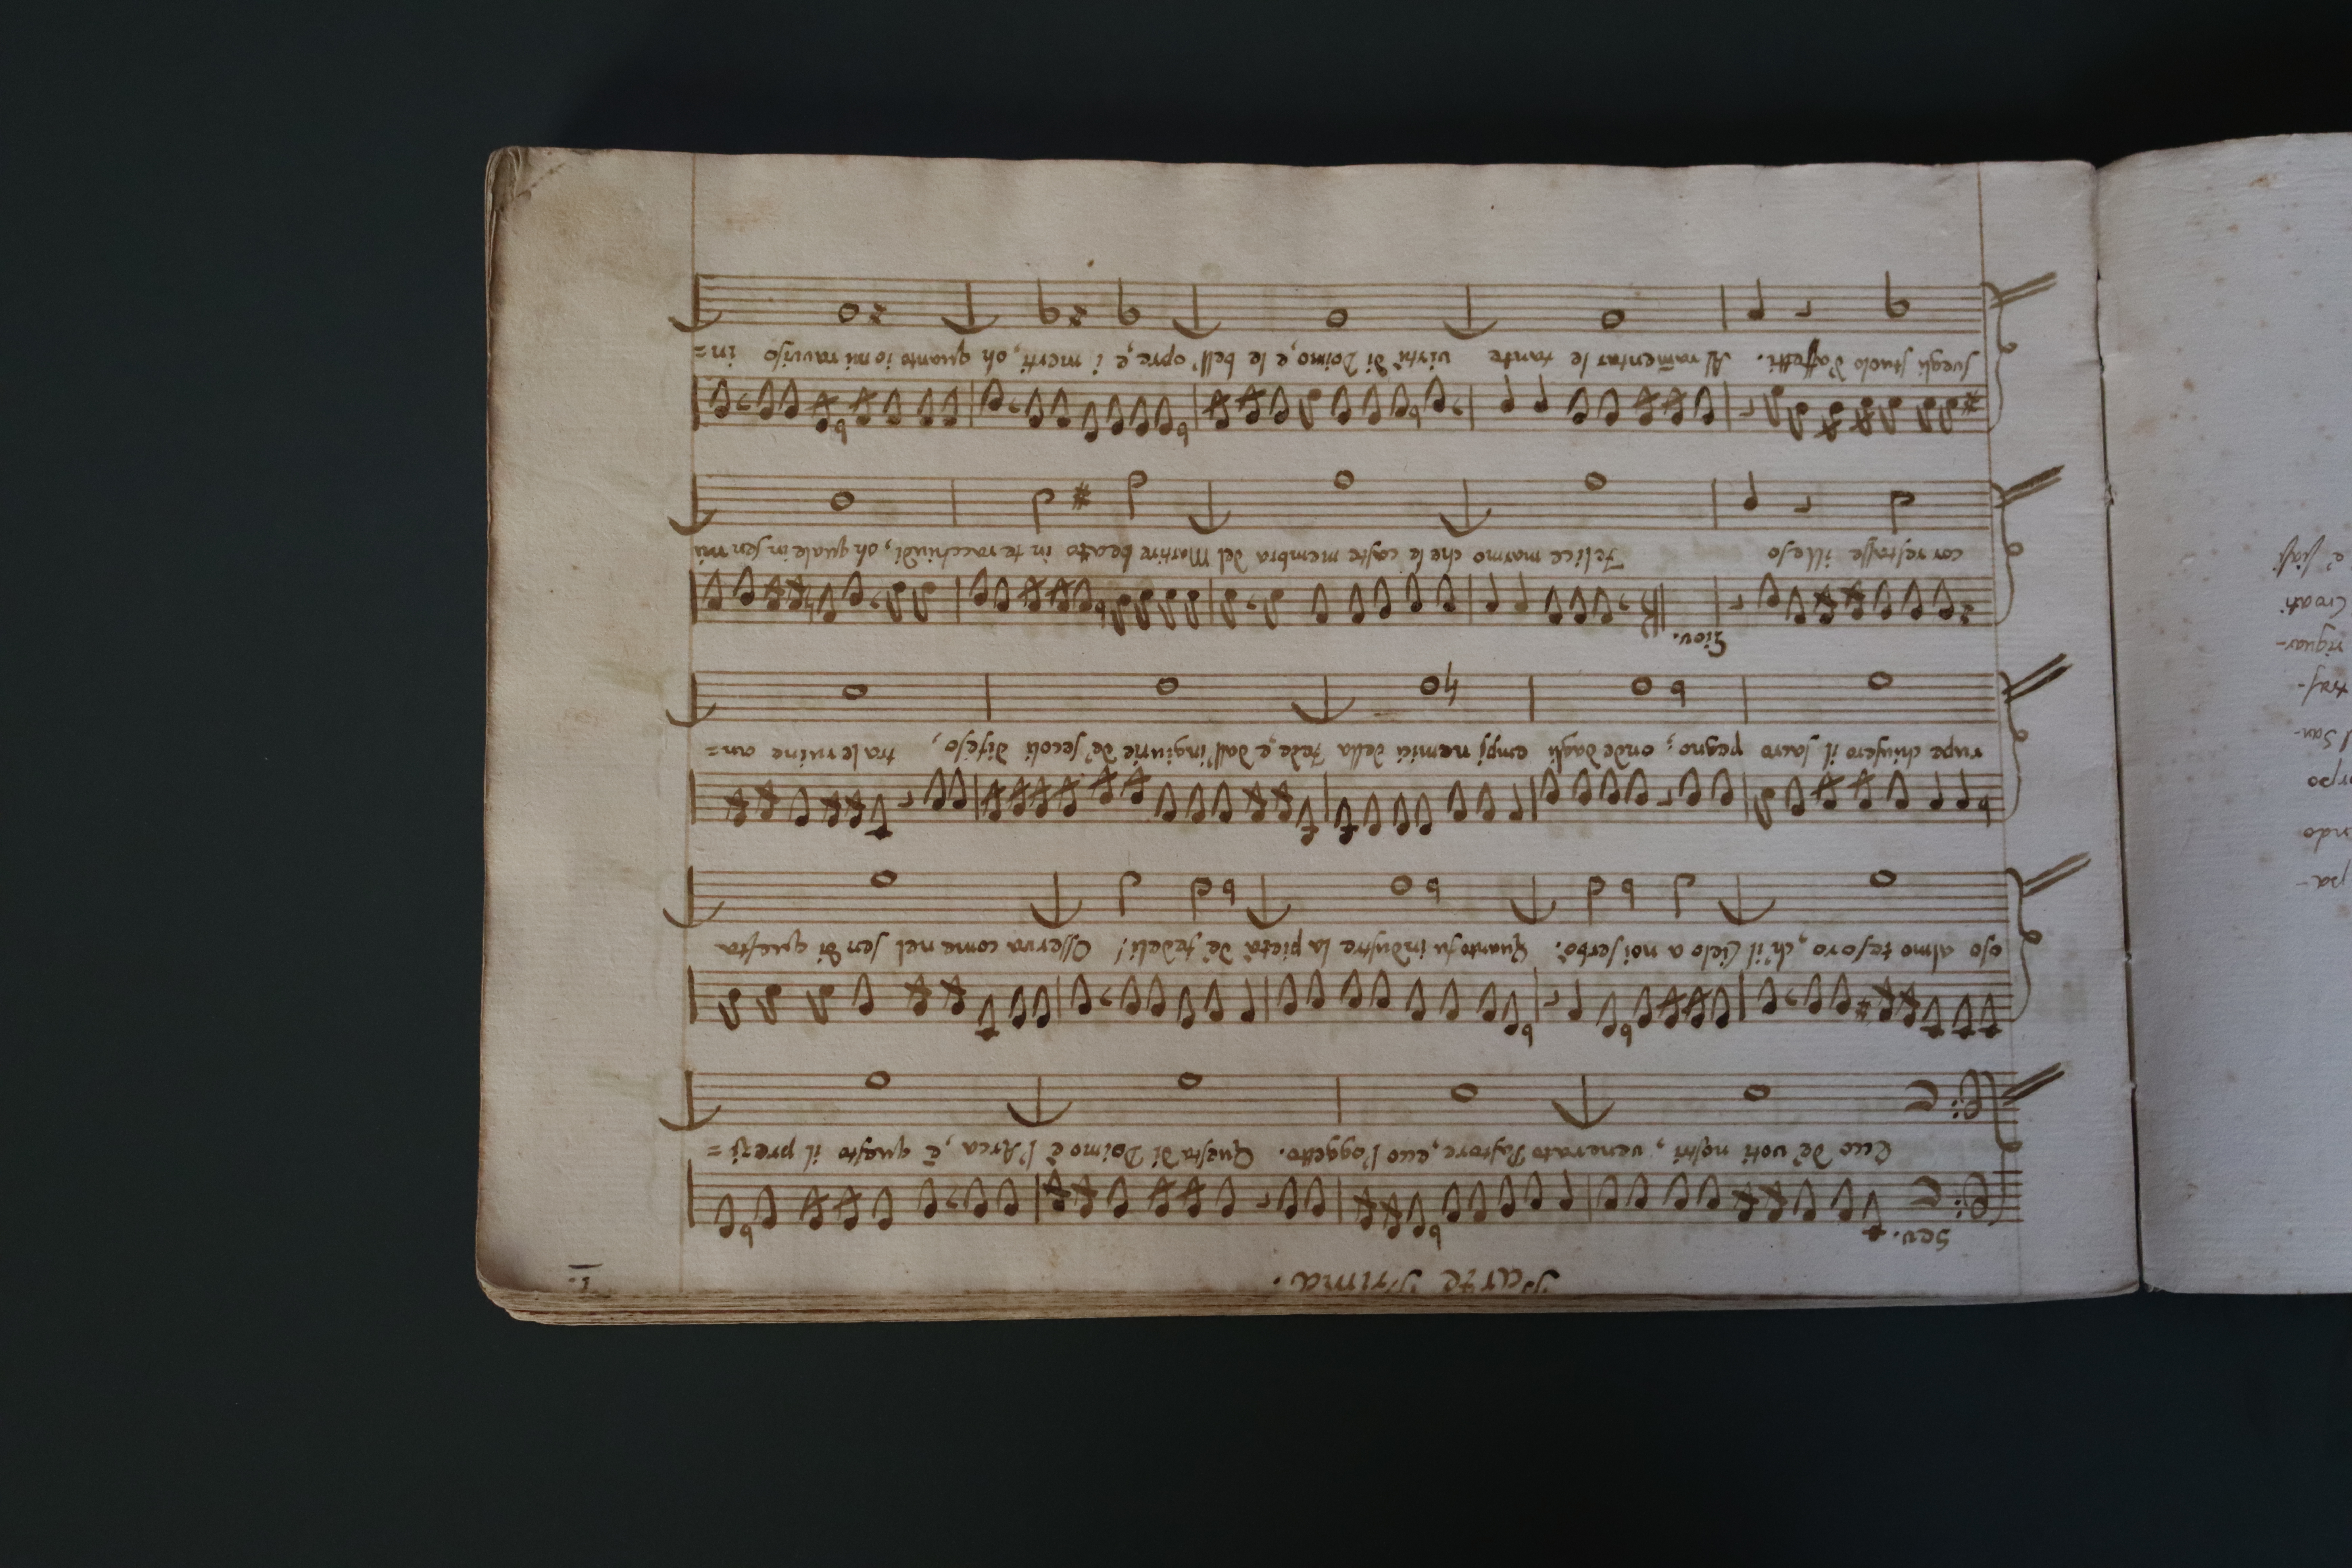 1.
Parte Prima.
Sev.
Ecco de' voti nostri, venerato Pastore, ecco l'oggetto. Questa di Doimo è l'Arca, è questo il prezi=
oso almo tesoro, ch'il Cielo a noi serbò. Quanto fu industre la pietà de' fedeli! Osserva come nel sen di questa
rupe chiusero il sacro pegno; onde dagli empj nemici della fede, e dall'ingiurie de' secoli difeso, tra le ruine an=
Giov.
cor restasse illeso Felice marmo che le caste membra del Martire beato in te racchiudi, oh quale in sen mi
svegli stuolo d'affetti. Al ramentar le tante virtù di Doimo, e le bell'opre, e i merti, oh quanto io mi raviso in=
pa-
ndo
rpo
San-
tras-
riguar-
Croati